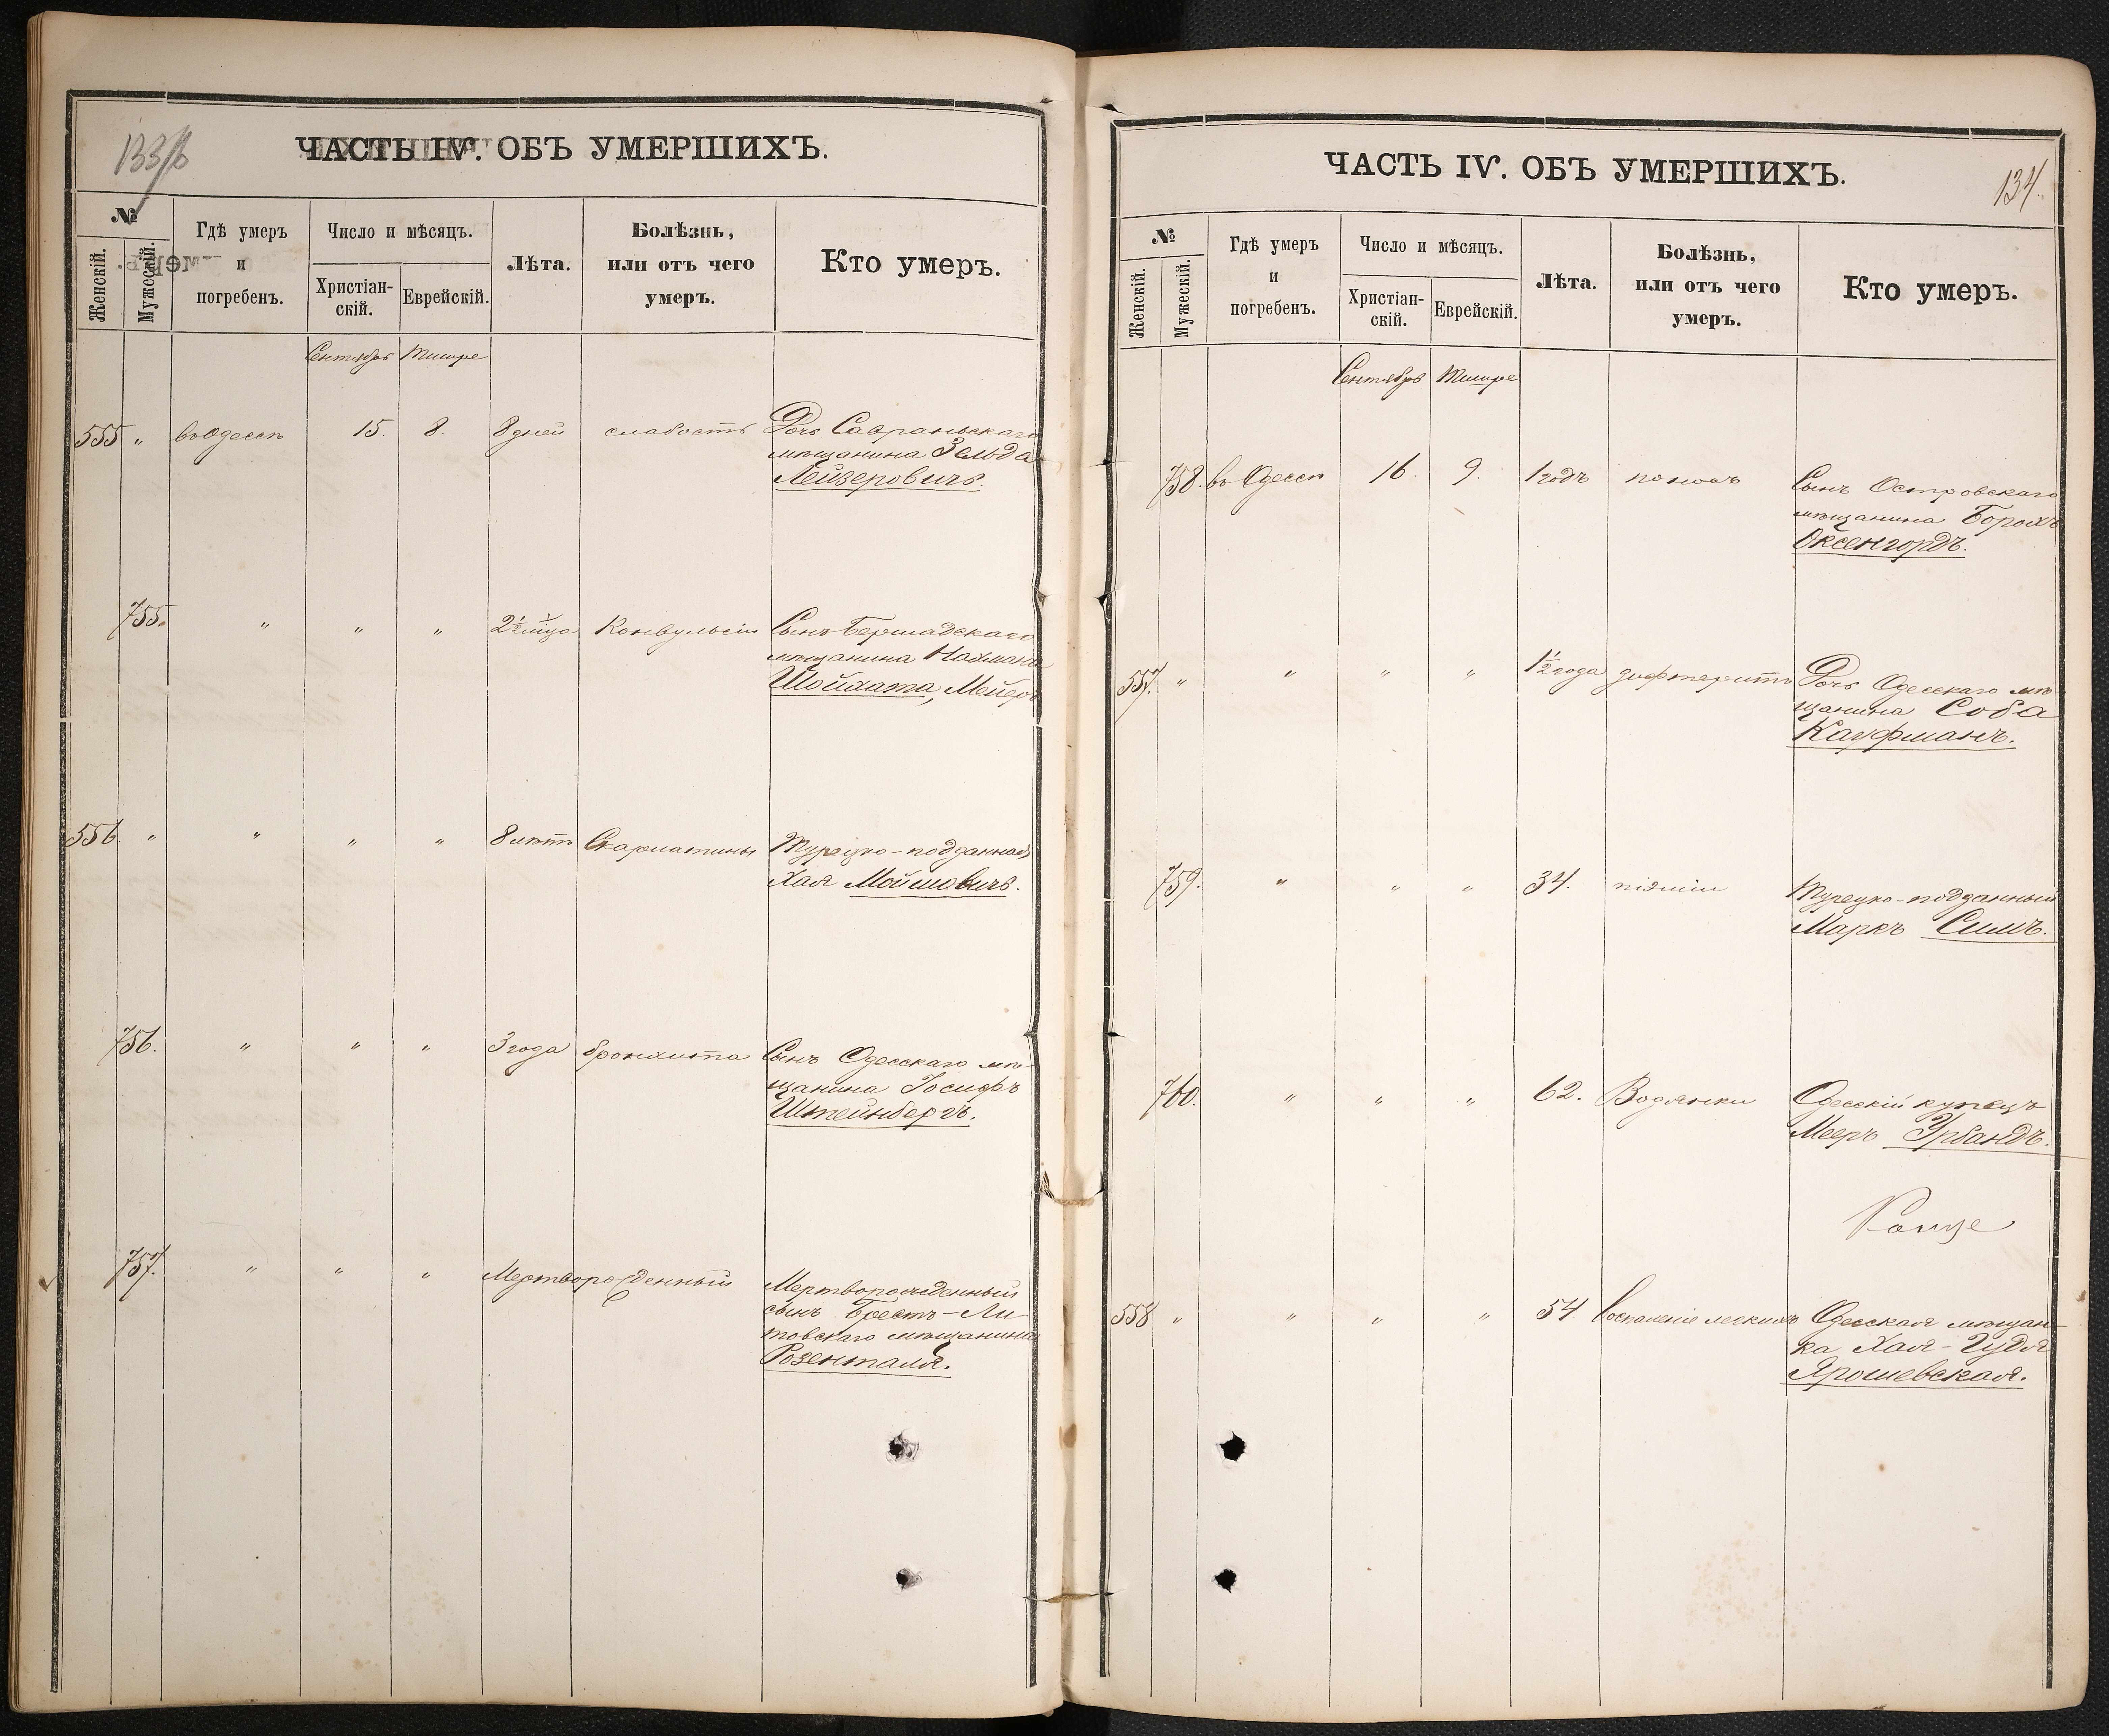 133/б
ЧАСТЬ IV. ОБЪ УМЕРШИХЪ.
№
Женскій.
Мужескій.
Гдѣ умеръ
и
погребенъ.
Число и мѣсяцъ.
Христіан-
скій.
Еврейскій.
Лѣта.
Болѣзнь,
или отъ чего
умеръ.
Кто умеръ.
Сентябрь Тишре
555 " въ Одессѣ 15. 8. 8 дней слабость Дочь Савраньскаго
мѣщанина Зельда
Лейзеровичъ.
755. " " " 2½ м-ца Конвульсіи Сынъ Бершадскаго
мѣщанина Нахмана
Шойхата, Мейеръ
556. " " " " 8 лѣтъ Скарлатины Турецко-подданная
Хая Мойшовичъ.
756. " " " 3 года бронхита Сынъ Одесскаго мѣ-
щанина Іосифъ
Штейнбергъ.
757. " " " Мертворожденный Мертворожденный
сынъ Брестъ-Ли-
товскаго мѣщанина
Розенталя.
134.
ЧАСТЬ IV. ОБЪ УМЕРШИХЪ.
№
Женскій.
Мужескій.
Гдѣ умеръ
и
погребенъ.
Число и мѣсяцъ.
Христіан-
скій.
Еврейскій.
Лѣта.
Болѣзнь,
или отъ чего
умеръ.
Кто умеръ.
Сентябрь Тишре
758. въ Одессѣ 16. 9. 1 годъ поносъ Сынъ Островскаго
мѣщанина Борохъ
Оксенгордъ.
557. " " " " 1½ года дифтеритъ Дочь Одесскаго мѣ-
щанина Соба
Кауфманъ.
759. " " " 34. піэміи Турецко-подданный
Маркъ Симъ.
760. " " " 62. Водянки Одесскій купецъ
Мееръ Эрбандъ.
558. " " " " 54. Воспаленіе легкихъ Одесская мѣщан-
ка Хая-Гудя
Ярошевская.